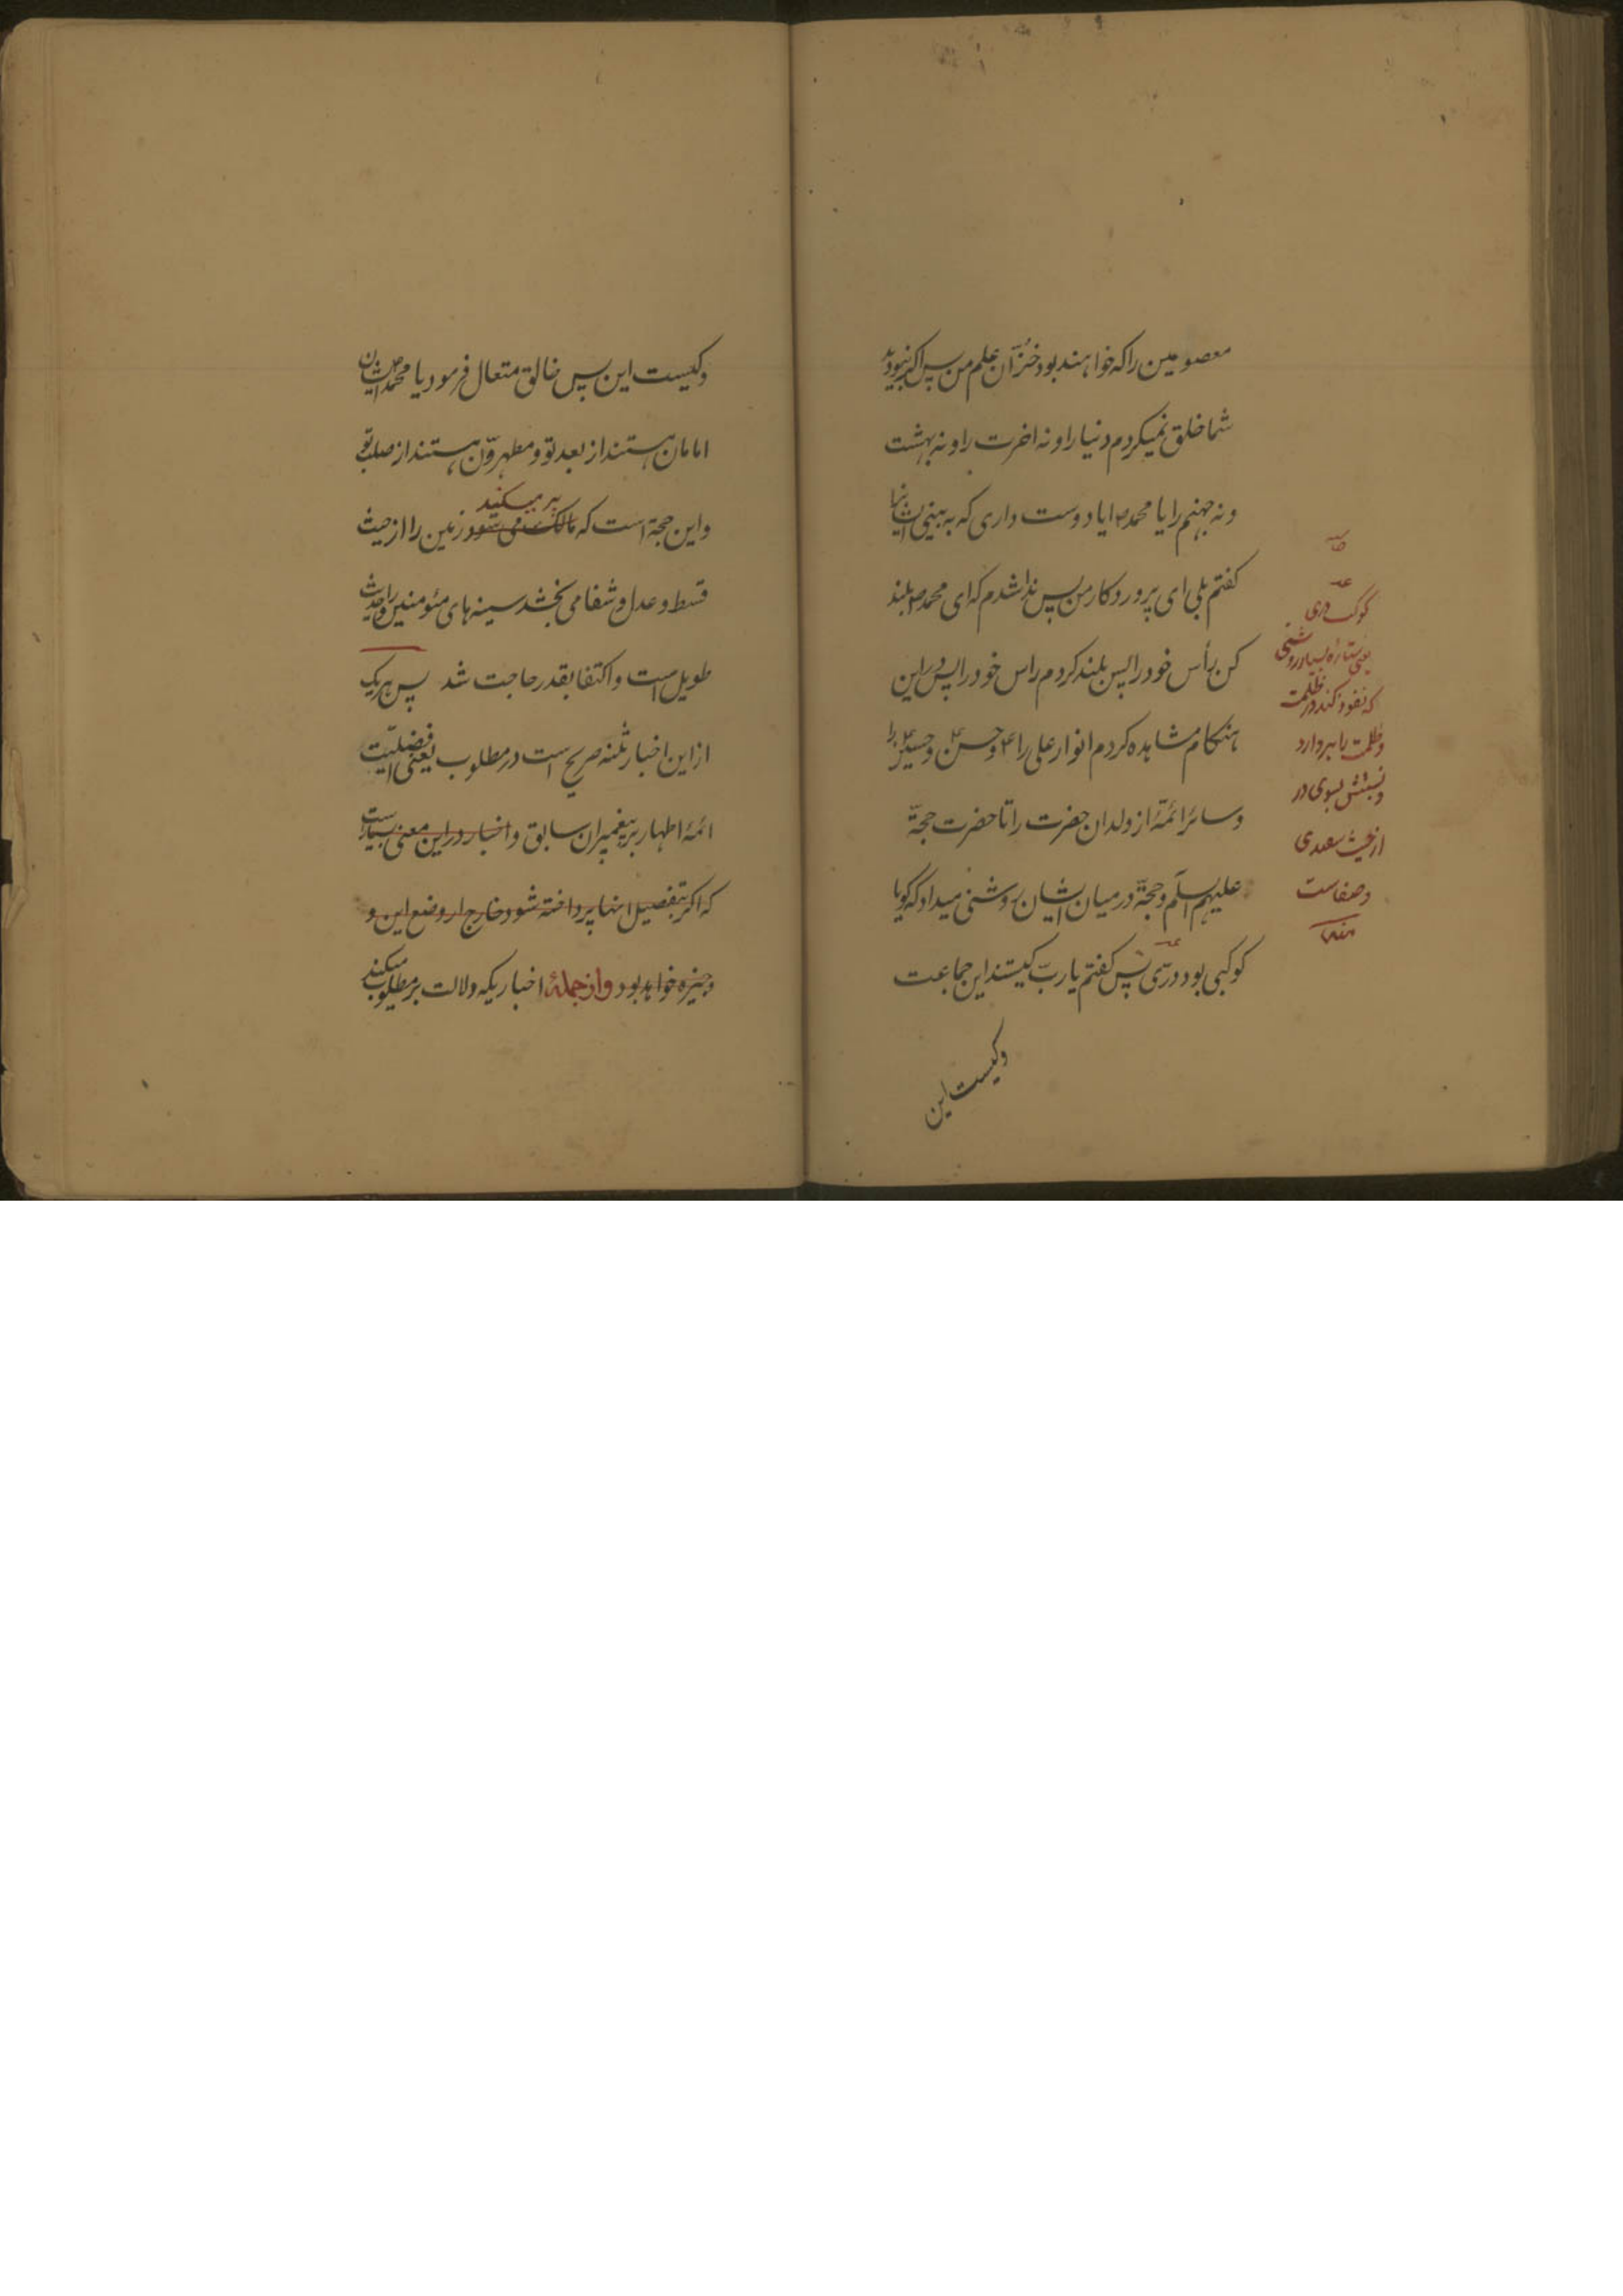 معصومین را که خواهند بود خُزّان علم من پس اکر نبودید
شما خلق نمیکردم دنیا را و نه اخرت را و نه بهشت
و نه جهنم را یا محمد ص ایا دوست داری که به بینی ایشانرا
کفتم بلی ای پروردکار من پس ندا شدم که ای محمد ص بلند
کن رأس خود را پس بلند کردم راس خود را پس در این
هنکام مشاهده کردم انوار علی را ع و حسن ع و حسین ع را
و سائر ائمّهٔ از ولدان حضرت را تا حضرت حجّة
علیهم السلم و حجّة در میان ایشان روشنی میداد که کویا
کوکبی بود درّی پس کفتم یا ربّ کیستند این جماعت
و کیست این
کوکب دری
یعنی ستاره بسیار روشنی
که نفوذ کند در ظلمت
و ظلمت را بردارد
و نسبتش بسوی در
از حیث سفیدی
و صفاست
منه
و کیست این پس خالق متعال فرمود یا محمد ص ایشان
امامان هستند از بعد تو و مطهرّون هستند از صلب تو
پر میکند
و این حجة است که مالک می شود زمین را از حیث
قسط و عدل و شفا می بخشد سینه های مئومنین را و حدیث
طویل است و اکتفا بقدر حاجت شد پس هر یک
از این اخبار ثلثه صریح است در مطلوب یعنی افضلیّت
ائمهٔ اطهار بر پیغمبران سابق و اخبار در این معنی بسیار است
که اکر بتفصیل انها پرداخته شود خارج از وضع این و
وجیزه خواهد بود و از جملهٔ اخباریکه دلالت بر مطلوب میکند